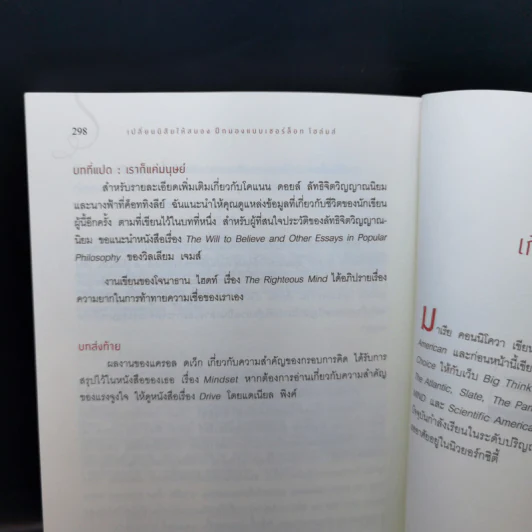 298
เปลี่ยนนิสัยให้สมอง ฝึกมองแบบเชอร์ล็อก โฮล์มส์
บทที่แปด : เราก็แค่มนุษย์
สำหรับรายละเอียดเพิ่มเติมเกี่ยวกับโคแนน ดอยล์ ลัทธิจิตวิญญาณนิยม
และนางฟ้าที่ค็อททิงลีย์ ฉันแนะนำให้คุณดูแหล่งข้อมูลที่เกี่ยวกับชีวิตของนักเขียน
ผู้นี้อีกครั้ง ตามที่เขียนไว้ในบทที่หนึ่ง สำหรับผู้ที่สนใจประวัติของลัทธิจิตวิญญาณ-
นิยม ขอแนะนำหนังสือเรื่อง The Will to Believe and Other Essays in Popular
Philosophy ของวิลเลียม เจมส์
งานเขียนของโจนาธาน ไฮดท์ เรื่อง The Righteous Mind ได้อภิปรายเรื่อง
ความยากในการท้าทายความเชื่อของเราเอง
บทส่งท้าย
ผลงานของแครอล ดเว็ก เกี่ยวกับความสำคัญของกรอบการคิด ได้รับการ
สรุปไว้ในหนังสือของเธอ เรื่อง Mindset หากต้องการอ่านเกี่ยวกับความสำคัญ
ของแรงจูงใจ ให้ดูหนังสือเรื่อง Drive โดยแดเนียล พิงค์
มาเรีย คอนนิโควา เขียน
American และก่อนหน้านี้เขีย
Choice ให้กับเว็บ Big Think
The Atlantic, Slate, The Par
MIND และ Scientific America
ปัจจุบันกำลังเรียนในระดับปริญ
อาศัยอยู่ในนิวยอร์กซิตี้